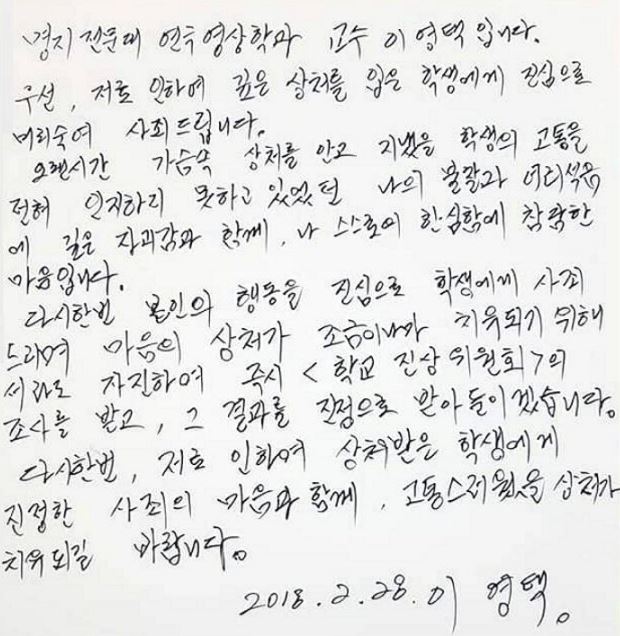 명지전문대 연극영상학과 교수 이영택입니다.
우선, 저로 인하여 깊은 상처를 입은 학생에게 진심으로
머리숙여 사죄드립니다.
오랜시간 가슴속 상처를 안고 지냈을 학생의 고통을
전혀 인지하지 못하고 있었던 나의 불찰과 어리석음
에 깊은 자괴감과 함께, 나 스스로의 한심함에 참담한
마음입니다.
다시한번 본인의 행동을 진심으로 학생에게 사죄
드리며 마음의 상처가 조금이나마 치유되기 위해
서라도 자진하여 즉시 <학교 진상위원회>의
조사를 받고, 그 결과를 진정으로 받아들이겠습니다.
다시한번, 저로 인하여 상처받은 학생에게
진정한 사죄의 마음과 함께, 고통스러웠을 상처가
치유되길 바랍니다.
2018.2.28. 이영택.